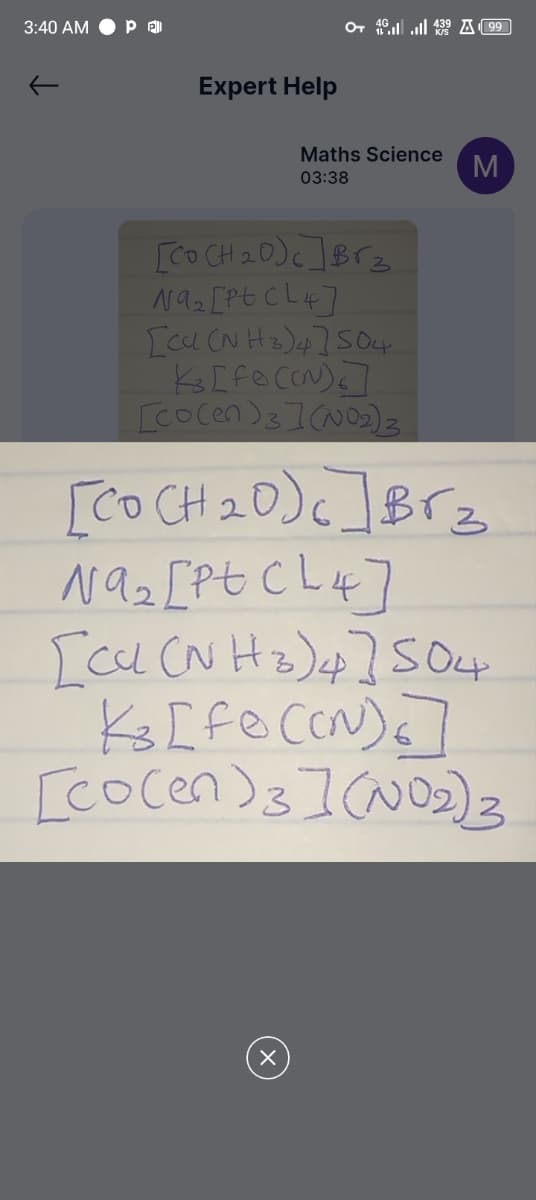 3:40 AM P
4G 439 K/S 99
Expert Help
Maths Science M
03:38
[CO(H2O)6]Br3
Na2[PtCL4]
[Cd(NH3)4]SO4
K3[Fe(CN)6]
[CO(en)3](NO2)3
[CO(H2O)6]Br3
Na2[PtCL4]
[Cd(NH3)4]SO4
K3[Fe(CN)6]
[CO(en)3](NO2)3